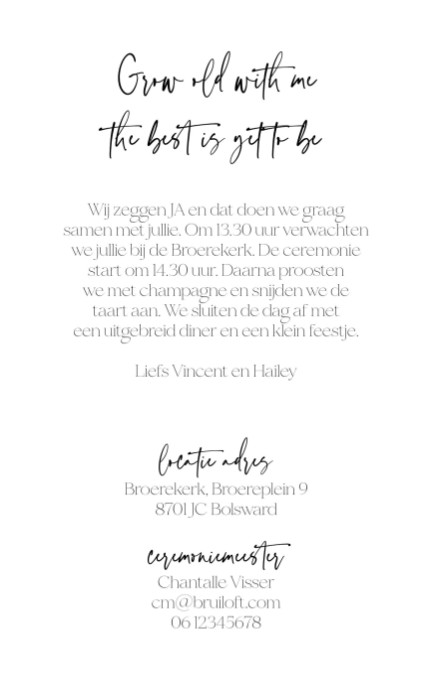 Grow old with me
the best is yet to be
Wij zeggen JA en dat doen we graag
samen met jullie. Om 13.30 uur verwachten
we jullie bij de Broerekerk. De ceremonie
start om 14.30 uur. Daarna proosten
we met champagne en snijden we de
taart aan. We sluiten de dag af met
een uitgebreid diner en een klein feestje.
Liefs Vincent en Hailey
locatie adres
Broerekerk, Broereplein 9
8701 JC Bolsward
ceremoniemeester
Chantalle Visser
cm@bruiloft.com
06 12345678